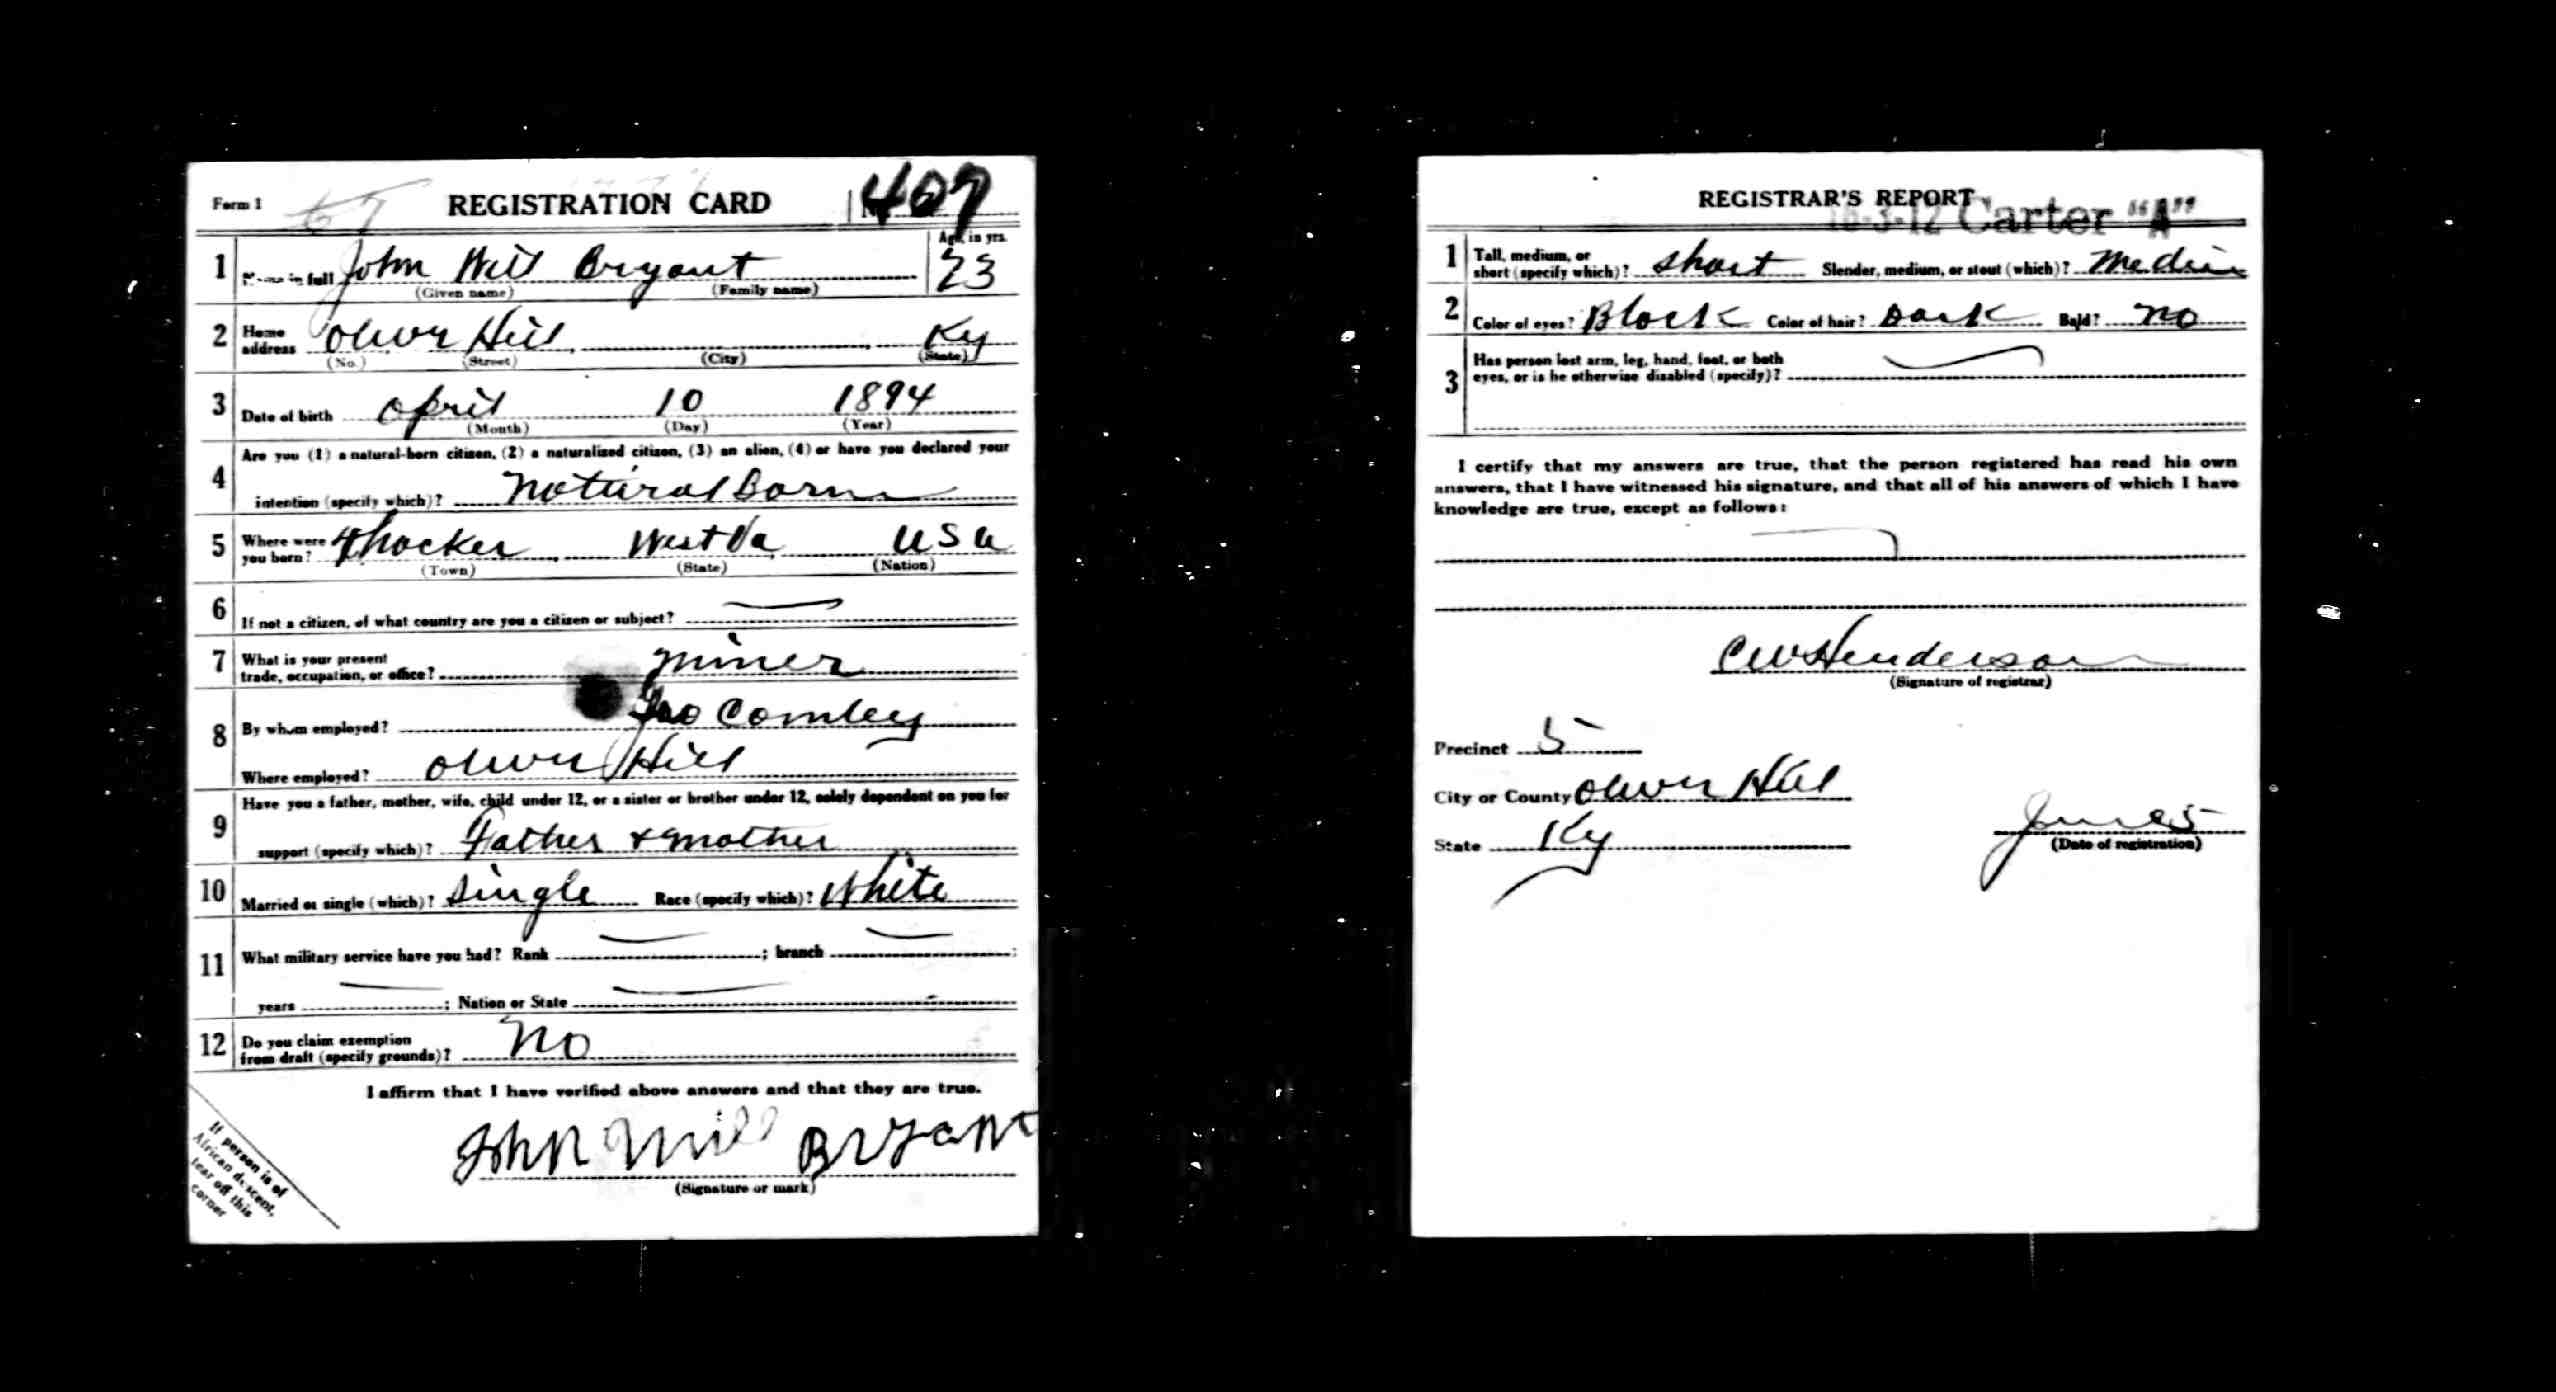 Form 1 67 REGISTRATION CARD 409
1 Name in full John Will Bryant Age, in yrs. 23
(Given name) (Family name)
2 Home address Oliver Hill Ky
(No.) (Street) (City) (State)
3 Date of birth April 10 1894
(Month) (Day) (Year)
4 Are you (1) a natural-born citizen, (2) a naturalized citizen, (3) an alien, (4) or have you declared your
intention (specify which)? Natural Born
5 Where were you born? Thacker West Va USA
(Town) (State) (Nation)
6 If not a citizen, of what country are you a citizen or subject?
7 What is your present
trade, occupation, or office? Miner
8 By whom employed? Geo Comley
Where employed? Oliver Hill
9 Have you a father, mother, wife, child under 12, or a sister or brother under 12, solely dependent on you for
support (specify which)? Father & Mother
10 Married or single (which)? Single Race (specify which)? White
11 What military service have you had? Rank ; branch ;
years ; Nation or State
12 Do you claim exemption
from draft (specify grounds)? No
I affirm that I have verified above answers and that they are true.
John Will Bryant
(Signature or mark)
If person is of
African descent,
tear off this
corner
REGISTRAR'S REPORT
16-3-12 Carter "A"
1 Tall, medium, or
short (specify which)? Short Slender, medium, or stout (which)? Medium
2 Color of eyes? Black Color of hair? Dark Bald? No
3 Has person lost arm, leg, hand, foot, or both
eyes, or is he otherwise disabled (specify)?
I certify that my answers are true, that the person registered has read his own
answers, that I have witnessed his signature, and that all of his answers of which I have
knowledge are true, except as follows:
CW Henderson
(Signature of registrar)
Precinct 5
City or County Oliver Hill
State Ky
June 5
(Date of registration)